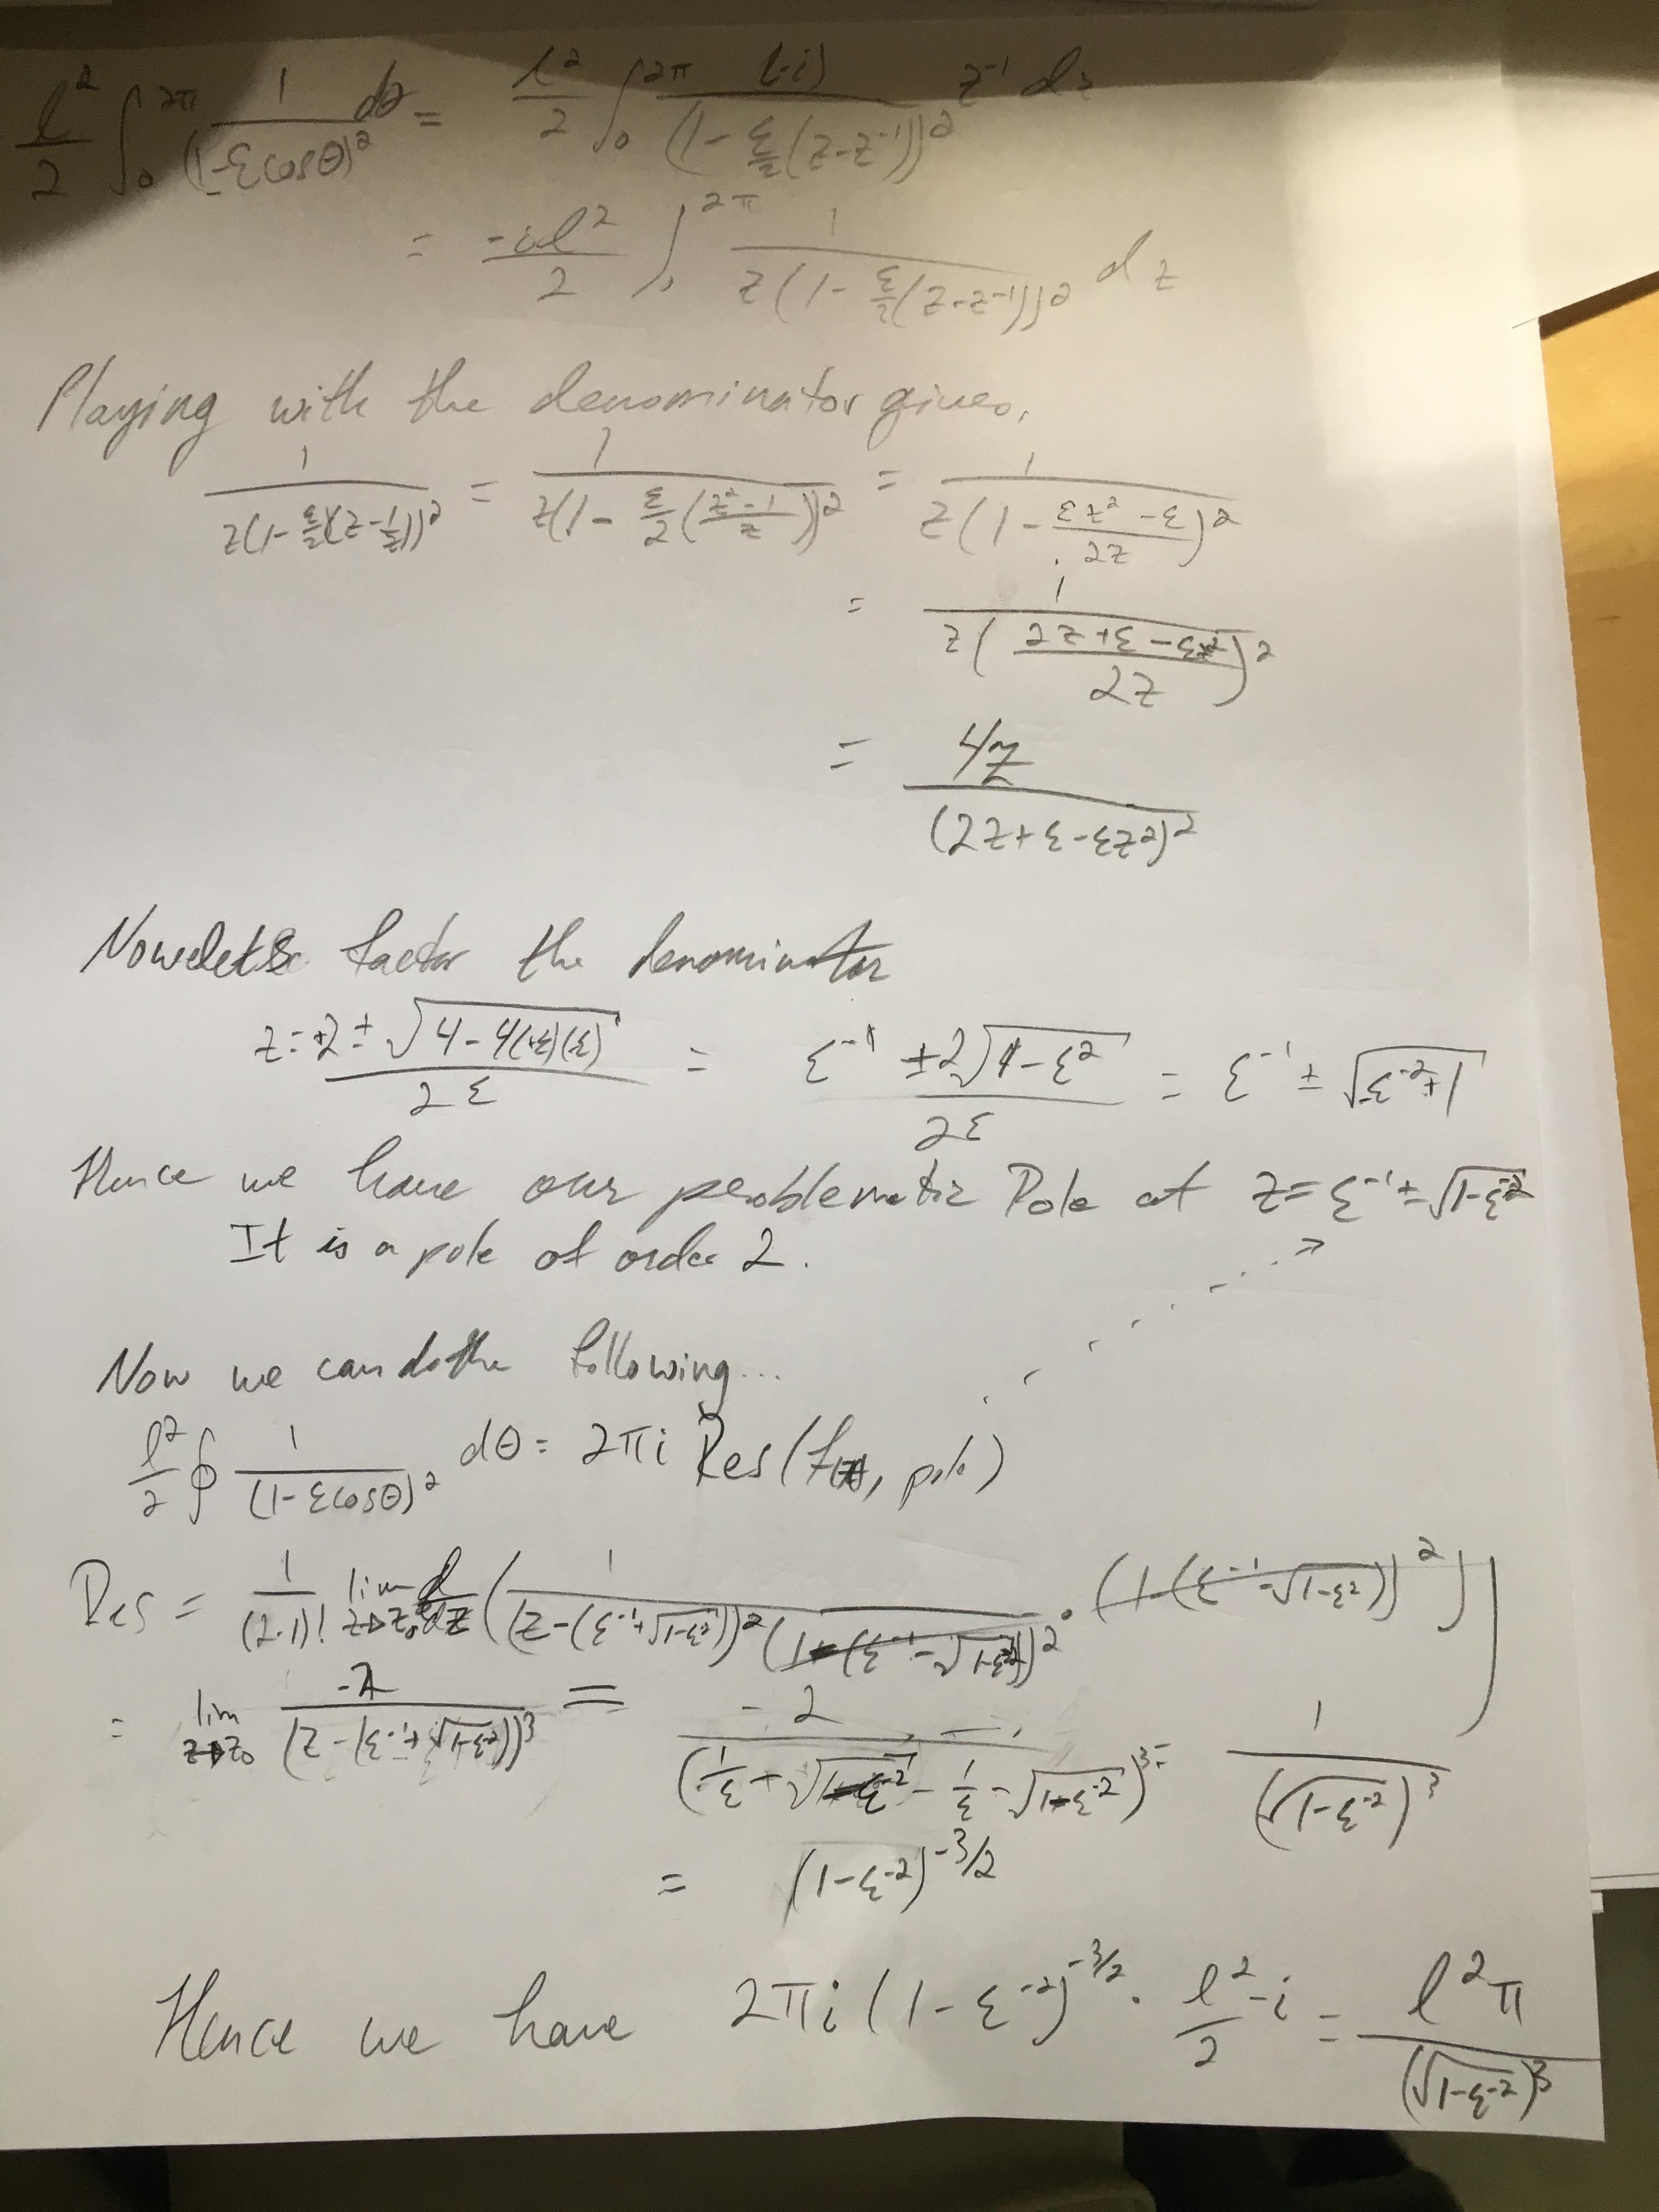 l²/2 ∫₀^2π 1/(1-εcosθ)² dθ = l²/2 ∫₀^2π (-i)/(1-ε/2(z-z⁻¹))² z⁻¹ dz
= -il²/2 ∫^2π 1/z(1-ε/2(z-z⁻¹))² dz
Playing with the denominator gives,
1/z(1-ε/2(z-1/z))² = 1/z(1-ε/2(z²-1/z))² = 1/z(1-εz²-ε/2z)²
= 1/z(2z+ε-εz²/2z)²
= 4z/(2z+ε-εz²)²
Now let's factor the denominator
z = +2±√4-4(+ε)(ε)/2ε = ε⁻¹ ± 2√1-ε²/2ε = ε⁻¹ ± √ε⁻²+1
Hence we have our problematic Pole at z=ε⁻¹+√1-ε⁻²
It is a pole of order 2.
Now we can do the following...
l²/2 ∮ 1/(1-εcosθ)² dθ = 2πi Res(f, pole)
Res = 1/(2-1)! lim z→z₀ d/dz (1/(z-(ε⁻¹+√1-ε⁻²))²(z-(ε⁻¹-√1-ε⁻²))² · (z-(ε⁻¹-√1-ε²))²)
= lim z→z₀ -2/(z-(ε⁻¹+√1+ε⁻²))³ = -2/(1/ε+√1-ε⁻²-1/ε-√1+ε⁻²)³ = 1/(√1-ε⁻²)³
= (1-ε⁻²)^-3/2
Hence we have 2πi(1-ε⁻²)^-3/2 · l²/2 -i = l²π/(√1-ε⁻²)³